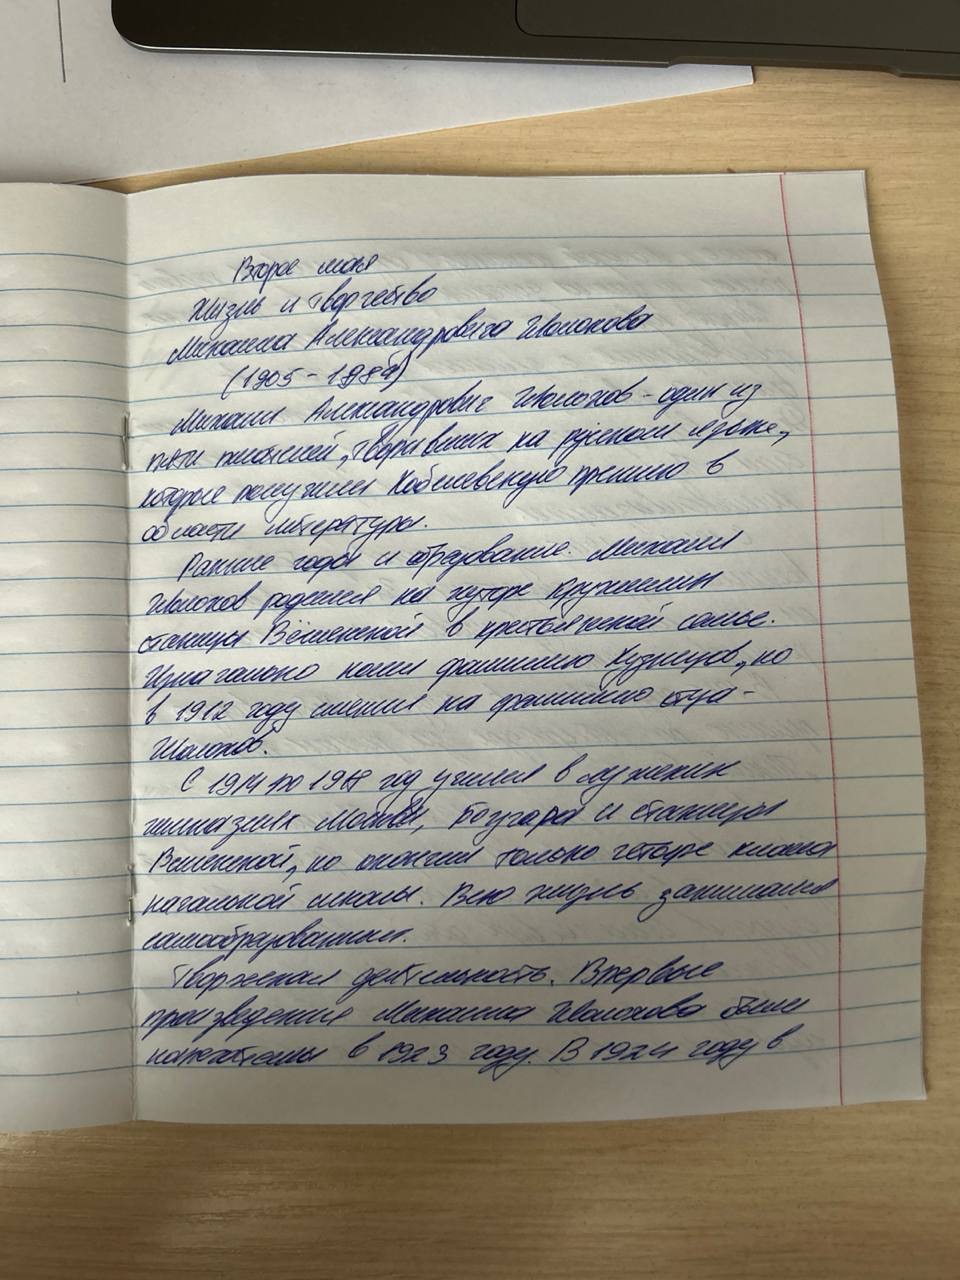 Второе мая
Жизнь и творчество
Михаила Александровича Шолохова
(1905 - 1984)
Михаил Александрович Шолохов - один из
пяти писателей, творивших на русском языке,
которые получили Нобелевскую премию в
области литературы.
Ранние годы и образование. Михаил
Шолохов родился на хуторе Кружилин
станицы Вёшенской в крестьянской семье.
Изначально носил фамилию Кузнецов, но
в 1912 году сменил на фамилию отца -
Шолохов.
С 1914 по 1918 год учился в мужских
гимназиях Москвы, Богучара и станицы
Вешенской, но окончил только четыре класса
начальной школы. Всю жизнь занимался
самообразованием.
Творческая деятельность. Впервые
произведения Михаила Шолохова были
напечатаны в 1923 году. В 1924 году в